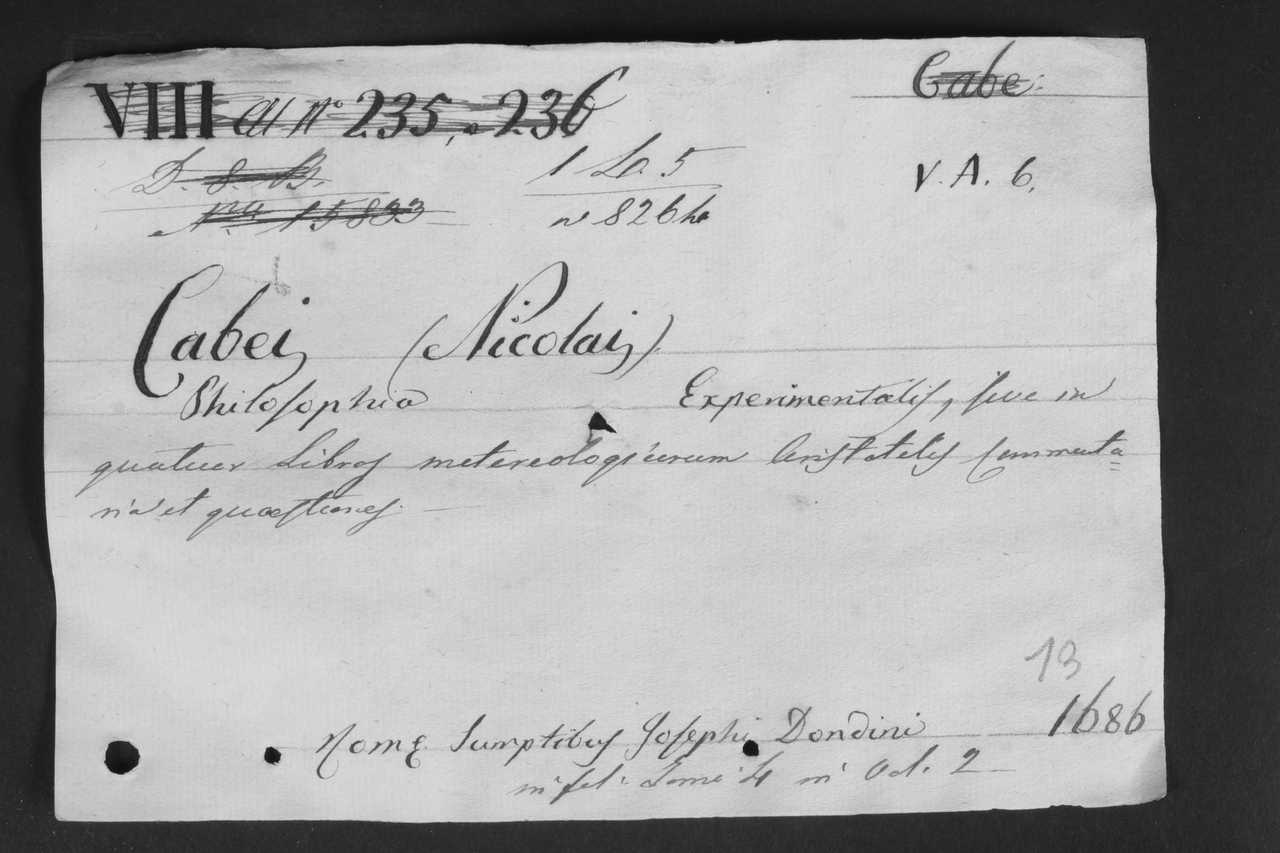 Cabe:
VIII al n° 235, a 236
D. 8. B.
1 Lo. 5
V. A. 6,
N° 15833
n 826
Cabei (Nicolai)
Philosophia Experimentalis, sive in
quatuor Libros metereologicorum Aristotelis Commenta=
ria et quæstiones.
13
Romę Sumptibus Josephi Dondini 1686
in fol: Tomi 4 in Vol. 2